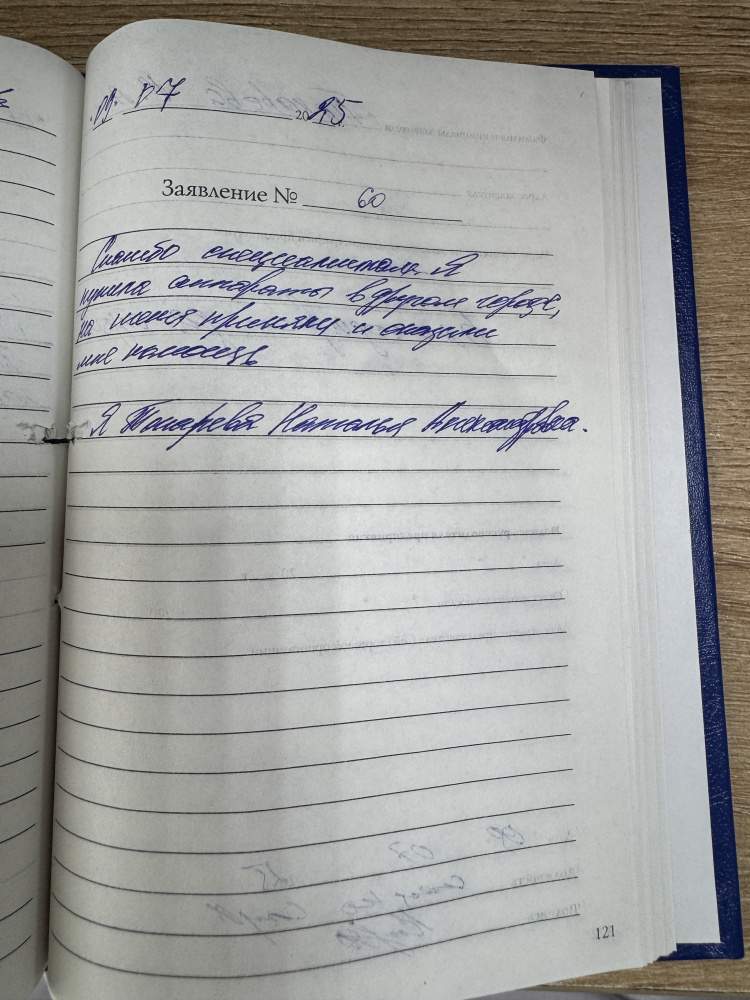 09. 07 2025
Заявление № 60
Спасибо специалистам. Я
купила аппараты в другом городе,
но меня приняли и оказали
мне помощь
Я Токарева Наталья Александровна.
121